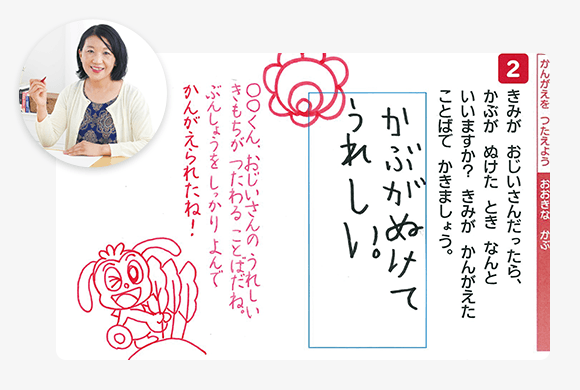 かんがえを つたえよう
おおきな かぶ
2
きみが おじいさんだったら、
かぶが ぬけた とき なんと
いいますか？ きみが かんがえた
ことばで かきましょう。
かぶがぬけて
うれしい。
〇〇くん、おじいさんの うれしい
きもちが つたわる ことばだね。
ぶんしょうを しっかり よんで
かんがえられたね！